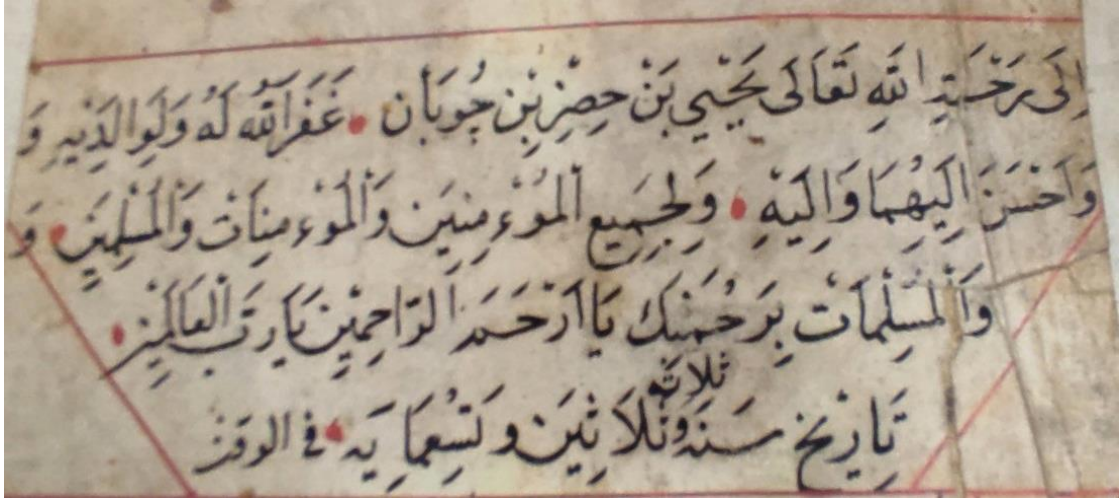 اِلَى رَحْمَةِ اللّٰهِ تَعَالَى يَحْيَي بَنْ حِضِرْ بِنْ جُوبَان غَفَرَ اللّٰهُ لَهُ وَلَوِالِدَيْهِ وَ
وَاَحْسَنَ اِلَيْهِمَا وَاِلَيْهِ وَلِجَمِيعِ اَلْمُوْءمِنِيَن وَاَلْمُوْءمِنَاتْ وَاَلْمُسْلِمِيَن وَ
وَاَلْمُسْلِمَاتْ بِرَحْمَتِكَ يَا اَرْحَمَ الرَّاحِمِيْن يَارَبَّ الْعَالَمِيْن
ثلاثه
تَارِيْخ سَنَه وَثَلَاثِيَن وَتِسْعِمَايَه في الوقت